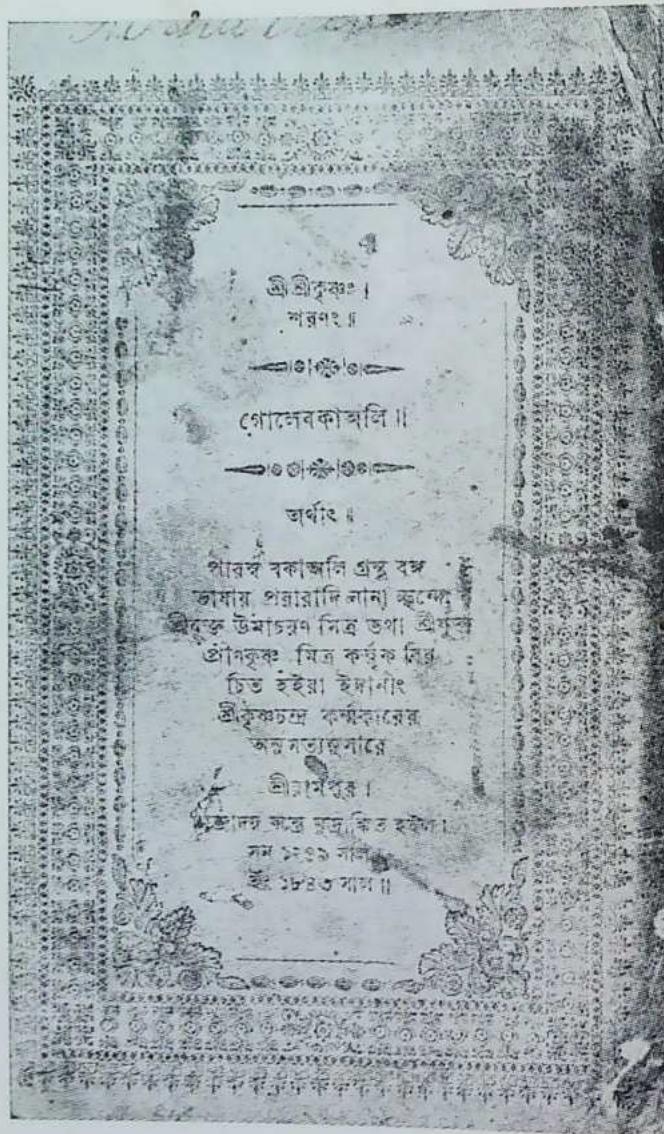 শ্রীশ্রীকৃষ্ণঃ।
শরণং॥
গোলেবকাঅলি॥
অর্থাৎ॥
পারস্য বকাঅলি গ্রন্থ বঙ্গ
ভাষায় পয়ারাদি নানা ছন্দে
শ্রীযুক্ত উমাচরণ মিত্র তথা শ্রীযুক্ত
প্রাণকৃষ্ণ মিত্র কর্ত্তৃক বির
চিত হইয়া ইদানীং
শ্রীকৃষ্ণচন্দ্র কর্ম্মকারের
অনুমত্যনুসারে
শ্রীরামপুর।
যন্ত্রে মুদ্রাঙ্কিত হইল।
সন ১২৪৯ সাল।
ইং ১৮৪৩ সাল॥